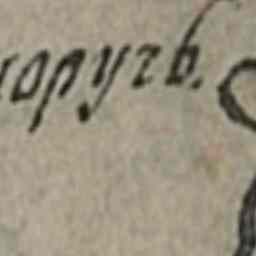 оругъ.